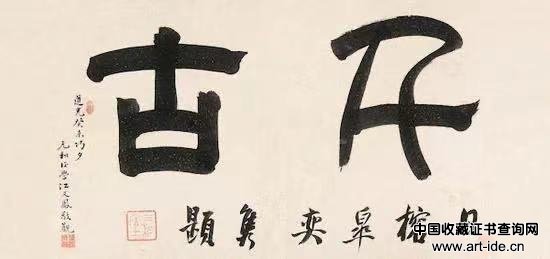 古
榕皋奕雋題
道光癸未巧夕
元和後學江文鳳敬觀
中国收藏证书查询网
www.art-ide.cn